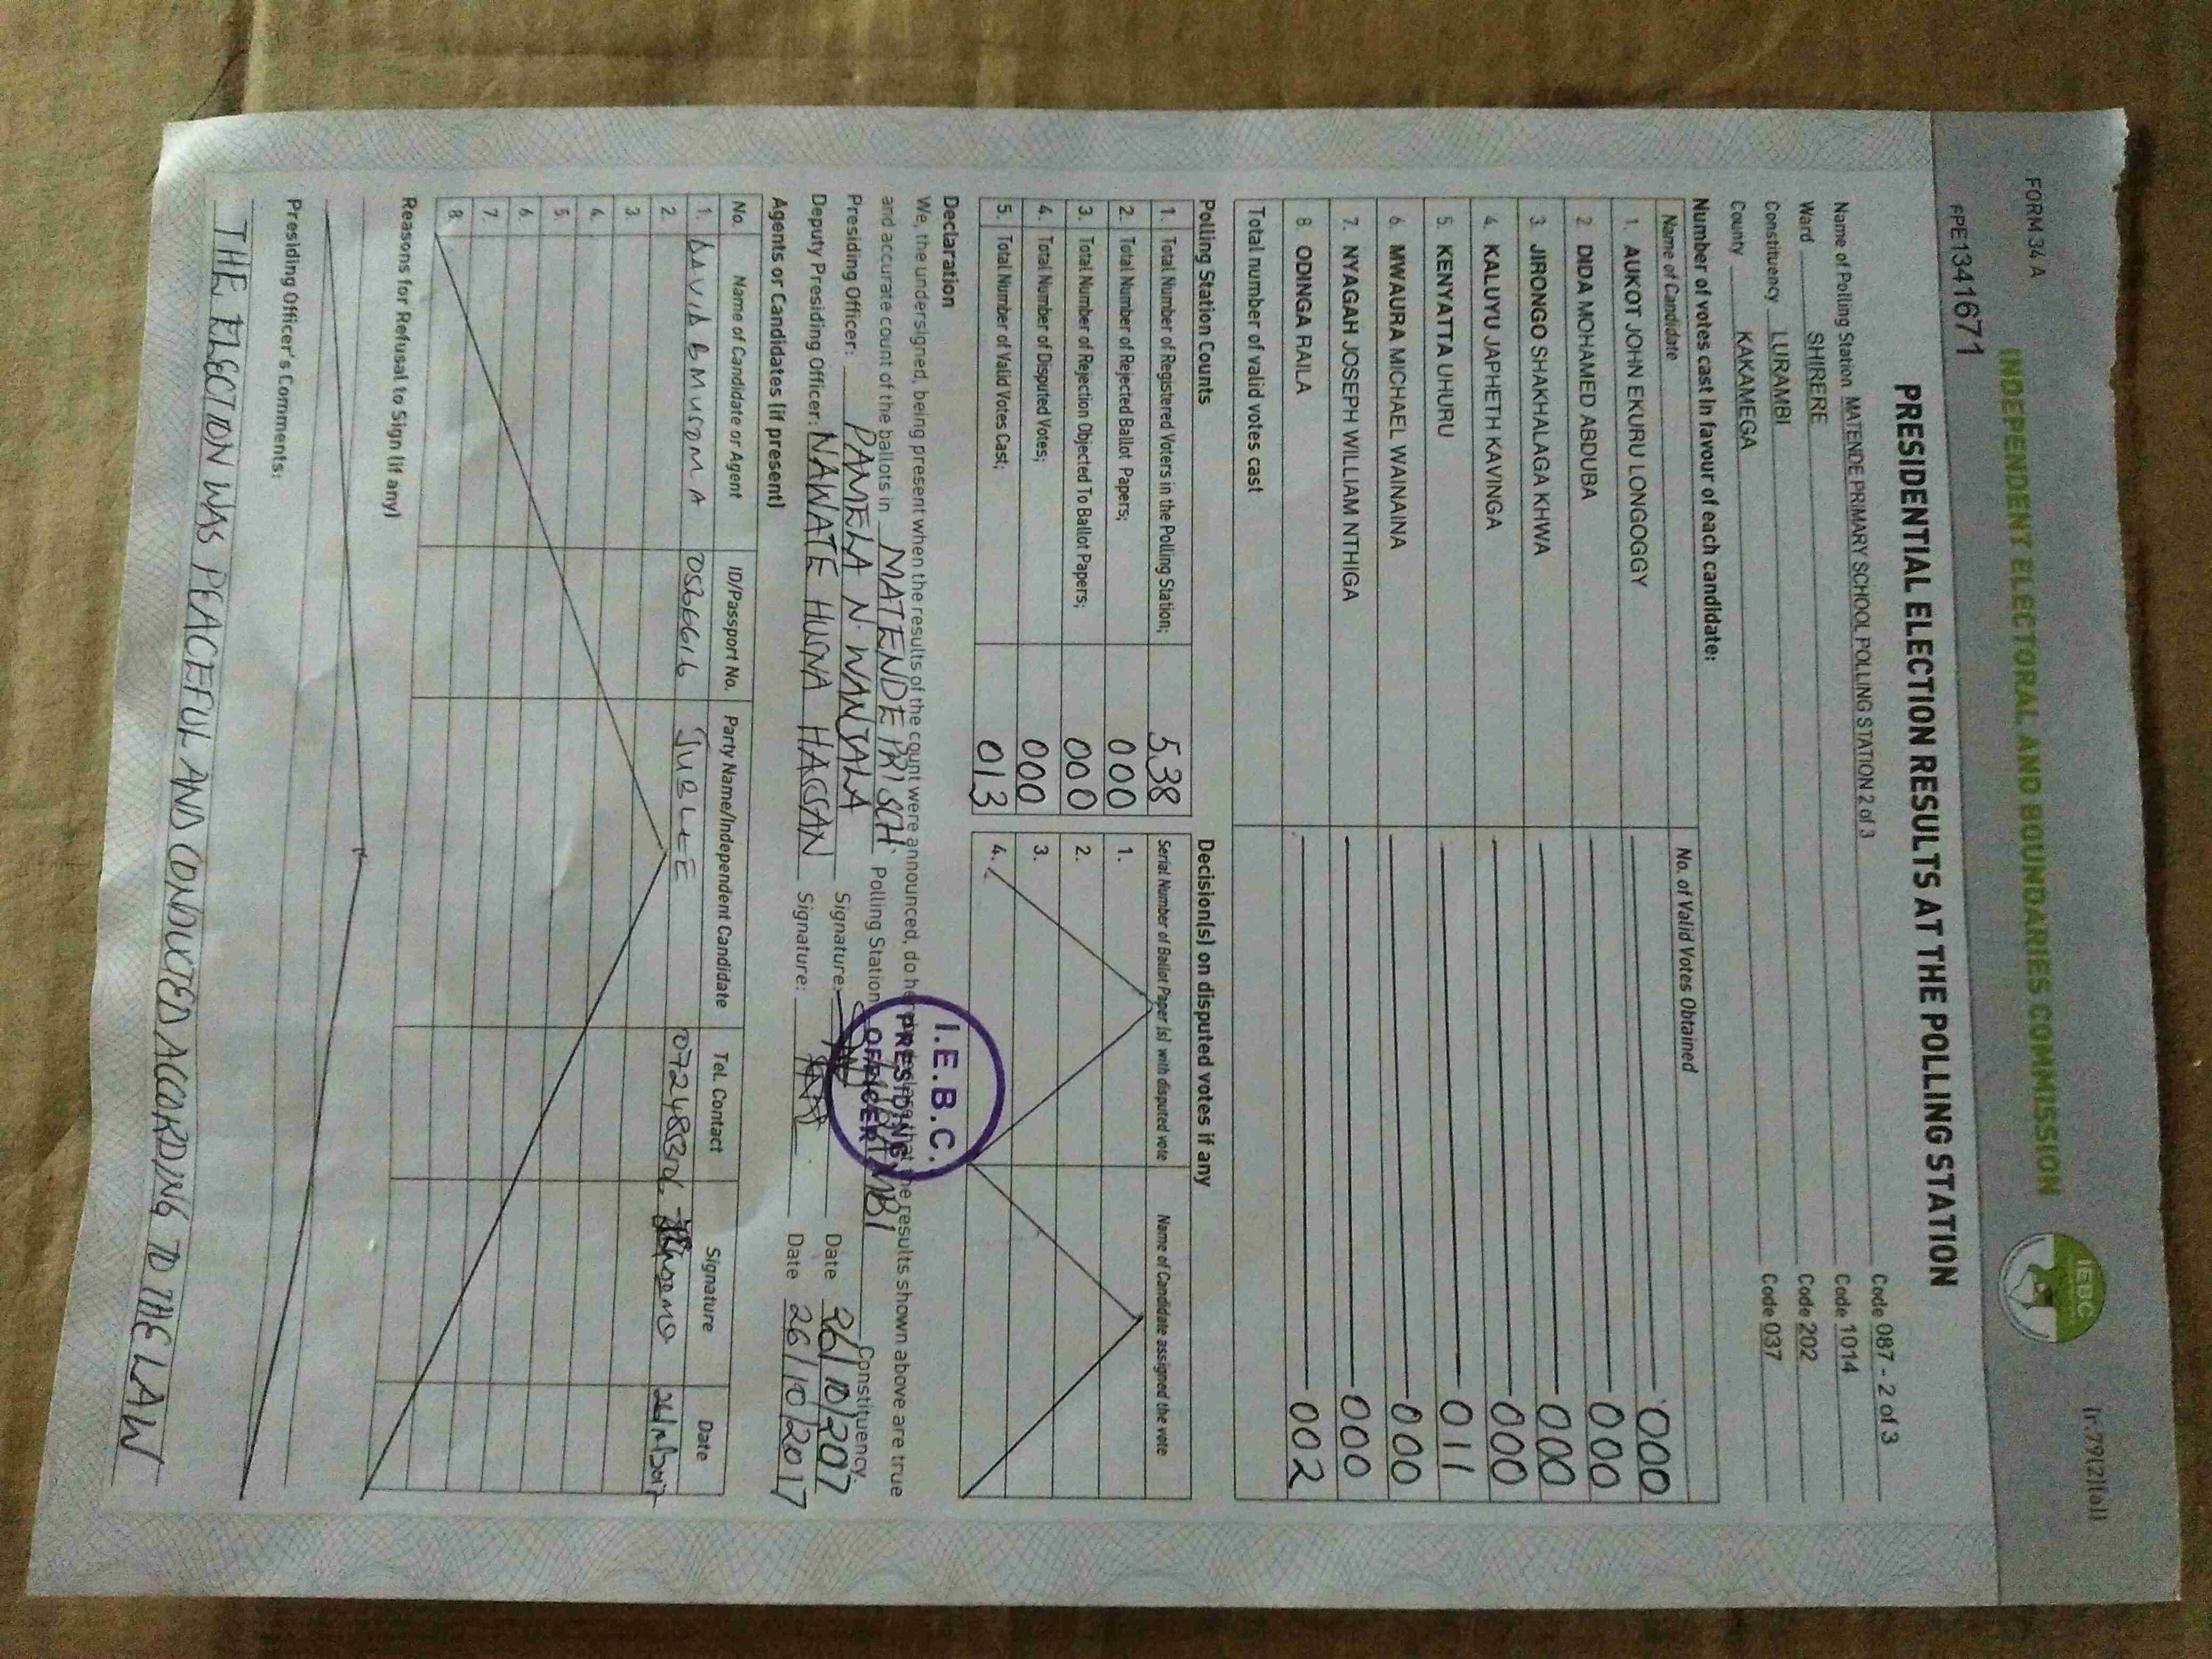 FORM 34 A
(r.79(2)(a))
INDEPENDENT ELECTORAL AND BOUNDARIES COMMISSION
IEBC
PRESIDENTIAL ELECTION RESULTS AT THE POLLING STATION
PE1341671
Name of Polling Station MATENDE PRIMARY SCHOOL POLLING STATION 2 of 3 Code 087 - 2 of 3
Ward SHIRERE Code 1014
Constituency LURAMBI Code 202
County KAKAMEGA Code 037
Number of votes cast in favour of each candidate:
Name of Candidate No. of Valid Votes Obtained
1. AUKOT JOHN EKURU LONGOGGY 000
2 DIDA MOHAMED ABDUBA 000
3. JIRONGO SHAKHALAGA KHWA 000
4. KALUYU JAPHETH KAVINGA 000
5. KENYATTA UHURU 011
6. MWAURA MICHAEL WAINAINA 000
7. NYAGAH JOSEPH WILLIAM NTHIGA 000
8. ODINGA RAILA 002
Total number of valid votes cast
Polling Station Counts
1. Total Number of Registered Voters in the Polling Station; 538
2. Total Number of Rejected Ballot Papers; 000
3. Total Number of Rejection Objected To Ballot Papers; 000
4. Total Number of Disputed Votes; 000
5. Total Number of Valid Votes Cast; 013
Decision(s) on disputed votes if any
Serial Number of Ballot Paper (s) with disputed vote Name of Candidate assigned the vote
1.
2.
3.
4.
Declaration
We, the undersigned, being present when the results of the count were announced, do hereby declare that the results shown above are true
and accurate count of the ballots in MATENDE PRI SCH. Polling Station LURAMBI Constituency.
Presiding Officer: PAMELA N. WANJALA Signature: Date 26/10/2017
Deputy Presiding Officer: NAWATE HUSNA HASSAN Signature: Date 26/10/2017
I.E.B.C.
PRESIDING
OFFICER
Agents or Candidates (if present)
No. Name of Candidate or Agent ID/Passport No. Party Name/Independent Candidate Tel. Contact Signature Date
1. DAVID B MUSOMA JUBILEE
2.
3.
4.
5.
6.
7.
8.
Reasons for Refusal to Sign (if any)
Presiding Officer's Comments:
THE ELECTION WAS PEACEFUL AND CONDUCTED ACCORDING TO THE LAW